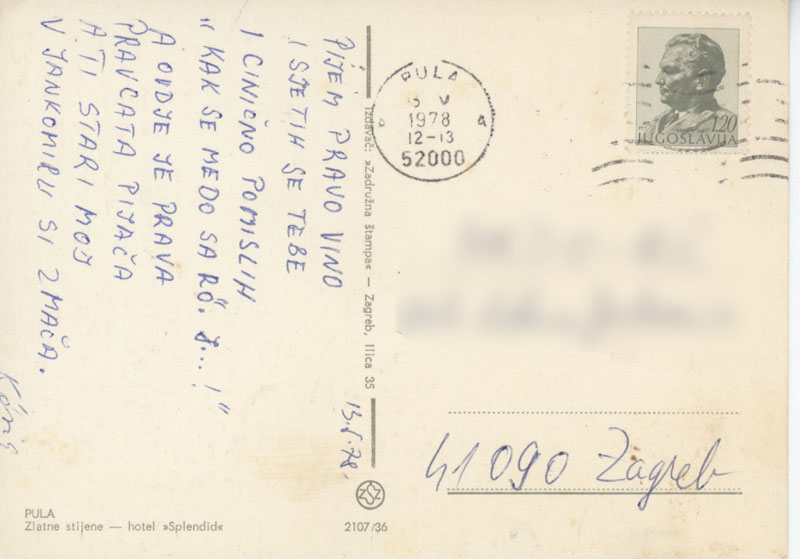 PIJEM PRAVO VINO
I SJETIH SE TEBE
I CINIČNO POMISLIH
"KAK SE MEDO SA RÖ. J...!"
A OVDJE JE PRAVA
PRAVCATA PIJAČA
A TI STARI MOJ
V JANKOMIRU SI ZMAČA.
13.5.78.
Izdavač: »Zadružna štampa« — Zagreb, Ilica 35
PULA
V
1978
12-13
52000
A
1.20
JUGOSLAVIJA
41090 Zagreb
PULA
Zlatne stijene — hotel »Splendid«
2107/36